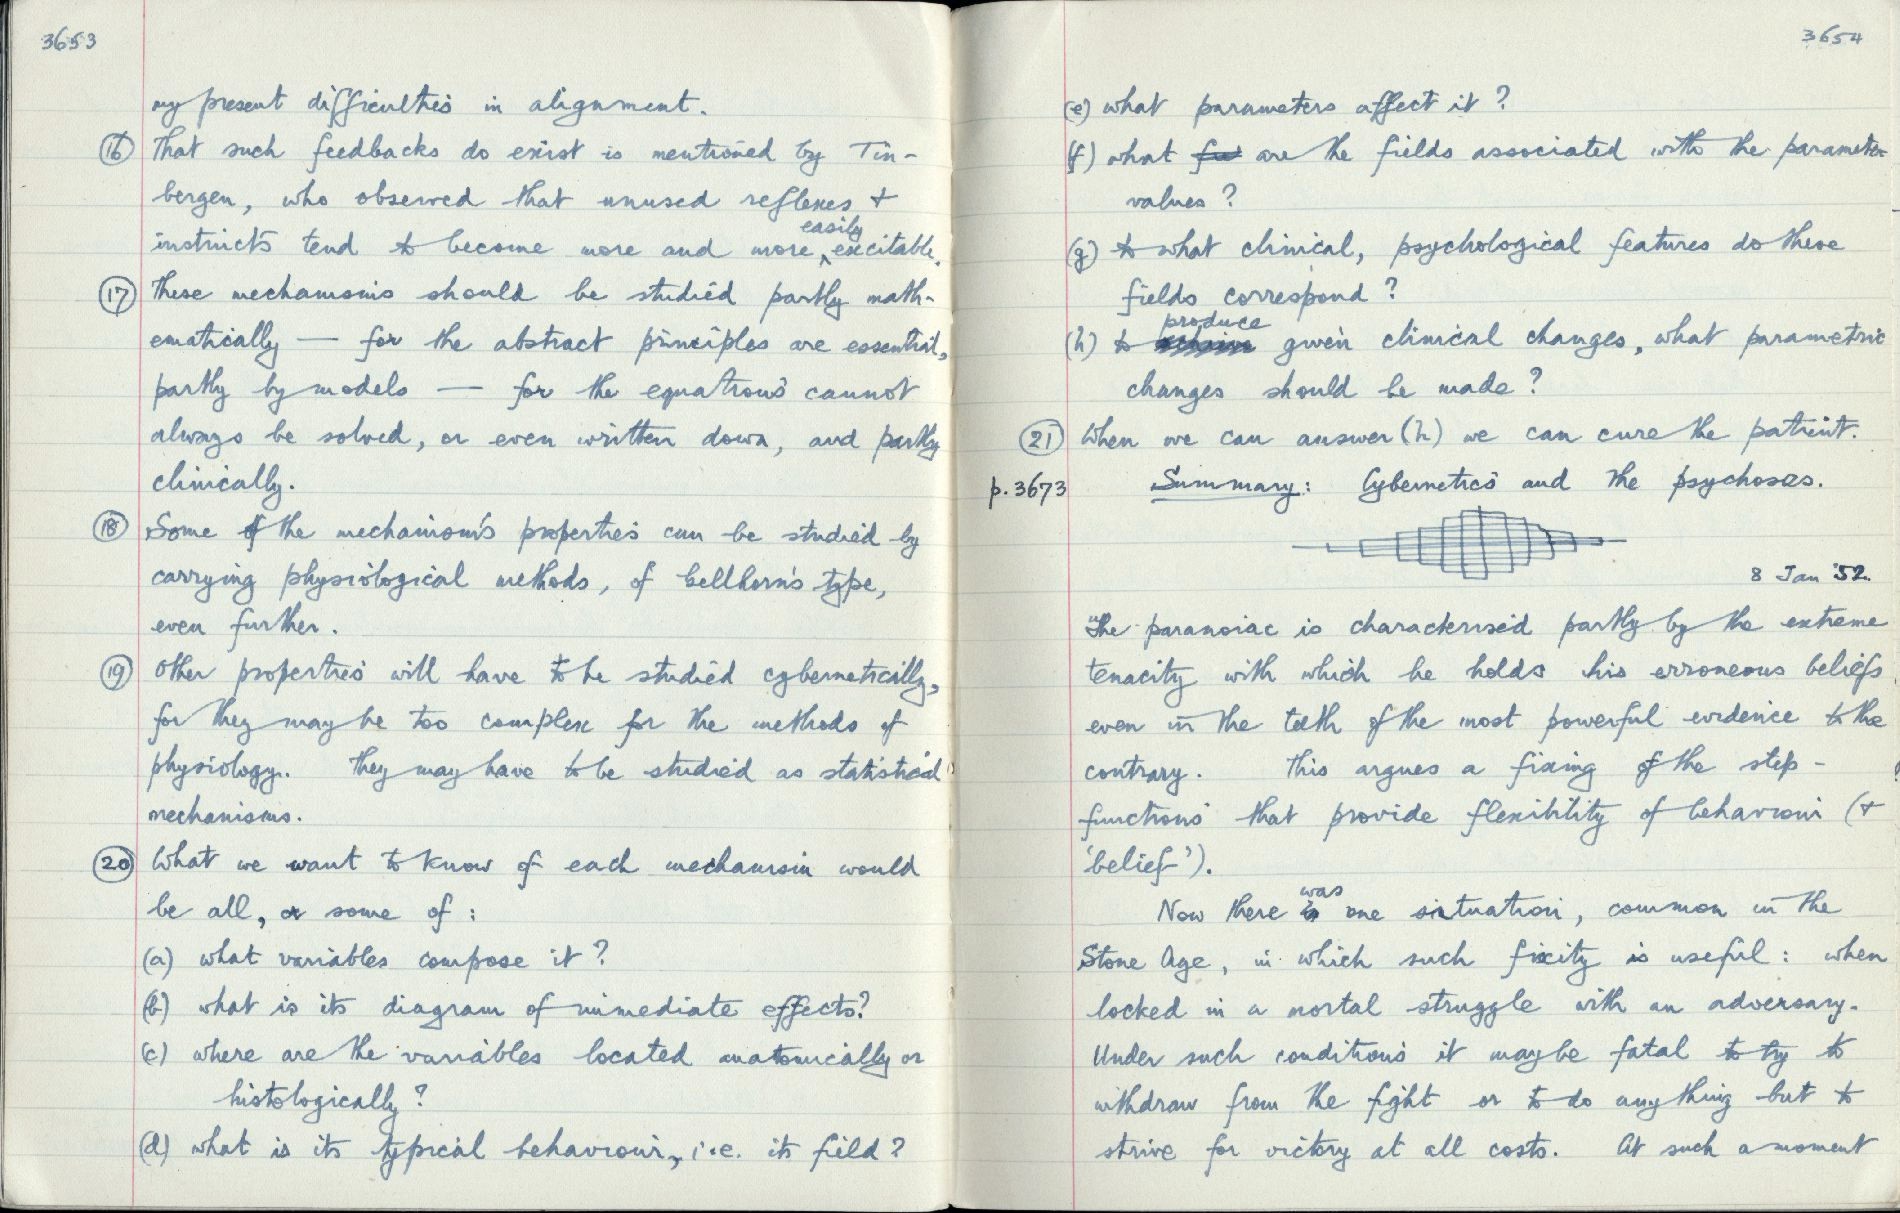 3653
my present difficulties in alignment.
(16) That such feedbacks do exist is mentioned by Tin-
bergen, who observed that unused reflexes +
instincts tend to become more and more easily excitable.
(17) These mechanisms should be studied partly math-
ematically — for the abstract principles are essential,
partly by models — for the equations cannot
always be solved, or even written down, and partly
clinically.
(18) Some of the mechanism's properties can be studied by
carrying physiological methods, of Bellhorn's type,
even further.
(19) Other properties will have to be studied cybernetically,
for they may be too complex for the methods of
physiology. They may have to be studied as statistical
mechanisms.
(20) What we want to know of each mechanism would
be all, or some of :
(a) what variables compose it ?
(b) what is its diagram of immediate effects?
(c) where are the variables located anatomically or
histologically ?
(d) what is its typical behaviour, i.e. its field ?
3654
(e) what parameters affect it ?
(f) what are the fields associated with the parameter
values ?
(g) to what clinical, psychological features do these
fields correspond ?
(h) to produce given clinical changes, what parametric
changes should be made ?
(21) When we can answer (h) we can cure the patient.
p. 3673 Summary: Cybernetics and the psychoses.
8 Jan '52.
The paranoiac is characterised partly by the extreme
tenacity with which he holds his erroneous beliefs
even in the teeth of the most powerful evidence to the
contrary. This argues a fixing of the step-
functions that provide flexibility of behaviour (+
'belief').
Now there was one situation, common in the
Stone Age, in which such fixity is useful : when
locked in a mortal struggle with an adversary.
Under such conditions it may be fatal to try to
withdraw from the fight or to do anything but to
strive for victory at all costs. At such a moment